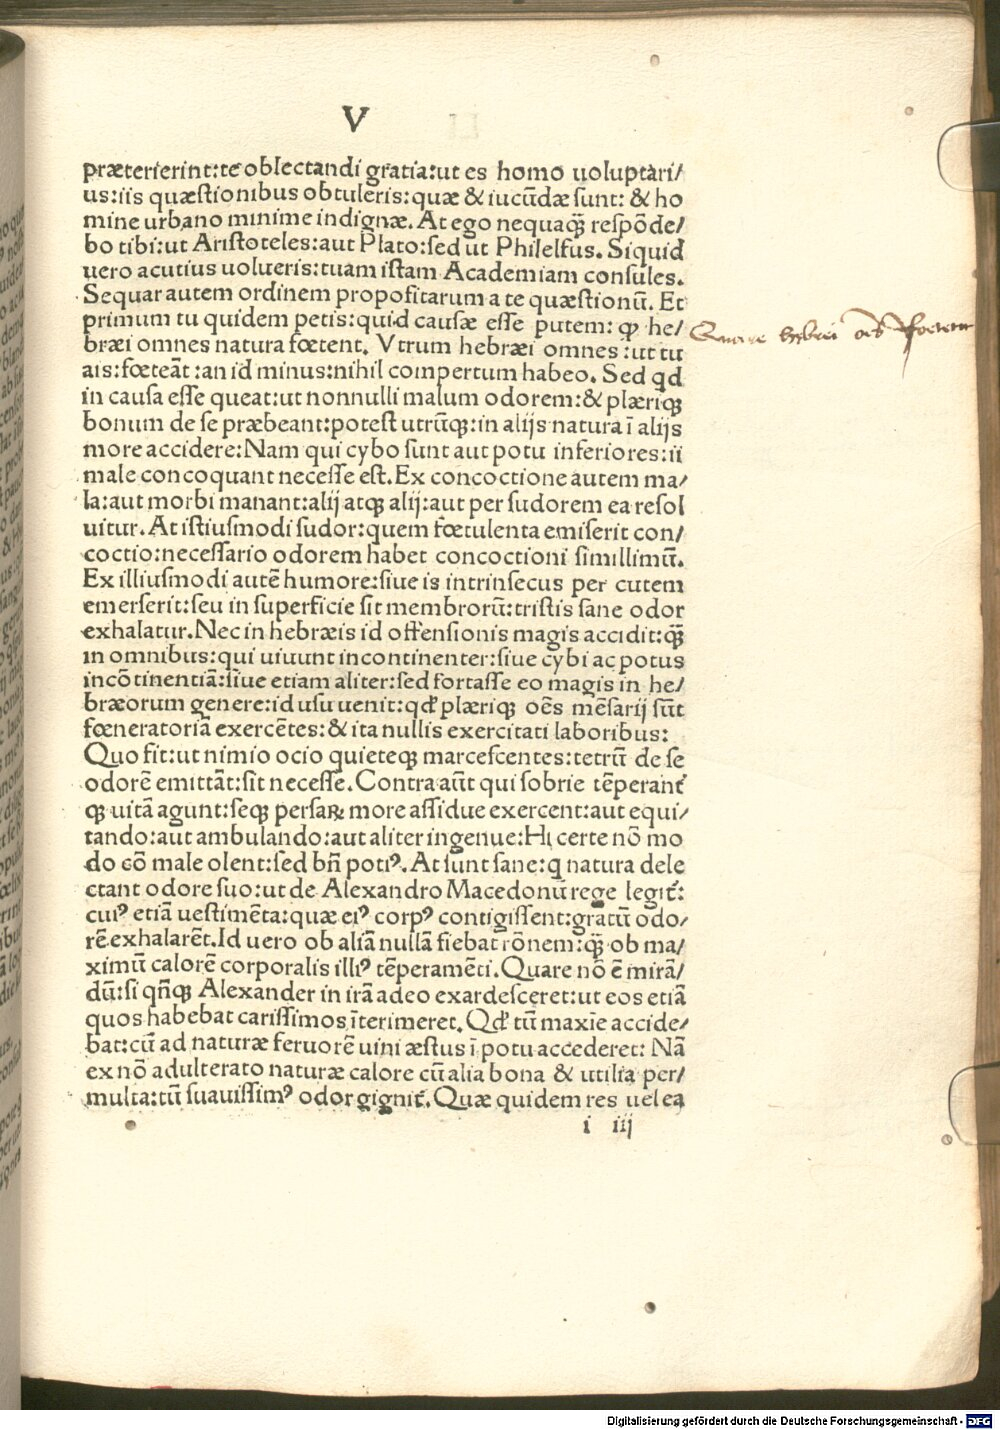 V
præterierint:te oblectandi gratia:ut es homo uoluptari/
us:iis quæstionibus obtuleris:quæ & iucūdæ sunt: & ho
mine urbano minime indignæ. At ego nequaq̄ respōde/
bo tibi:ut Aristoteles:aut Plato:sed ut Philelfus. Siquid
uero acutius uolueris:tuam istam Academiam consules.
Sequar autem ordinem propositarum a te quæstionū. Et
primum tu quidem petis:quid causæ esse putem: ꝙ he/
bræi omnes natura fœtent. Vtrum hebræi omnes:ut tu
ais:fœteāt:an id minus:nihil compertum habeo. Sed qd
in causa esse queat:ut nonnulli malum odorem:& plæriqꝫ
bonum de se præbeant:potest utrūqꝫ:in alijs natura ī alijs
more accidere:Nam qui cybo sunt aut potu inferiores:ii
male concoquant necesse est. Ex concoctione autem ma/
la:aut morbi manant:alij atqꝫ alij:aut per sudorem ea resol
uitur. At istiusmodi sudor:quem fœtulenta emiserit con/
coctio:necessario odorem habet concoctioni simillimū.
Ex illiusmodi autē humore:siue is intrinsecus per cutem
emerserit:seu in superficie sit membrorū:tristis sane odor
exhalatur. Nec in hebræis id offensionis magis accidit:q̄
in omnibus:qui uiuunt incontinenter:siue cybi ac potus
incōtinentiā:siue etiam aliter:sed fortasse eo magis in he/
bræorum genere:id usu uenit:qđ plæriqꝫ oēs mēsarij sūt
fœneratoriā exercētes:& ita nullis exercitati laboribus:
Quo fit:ut nimio ocio quieteqꝫ marcescentes:tetrū de se
odorē emittāt:sit necesse. Contra aūt qui sobrie tēperant̄
qꝫ uitā agunt:seqꝫ persaꝝ more assidue exercent:aut equi/
tando:aut ambulando:aut aliter ingenue:Hi certe nō mo
do nō male olent:sed bn̄ potiꝰ. At sunt sane:q natura dele
ctant odore suo:ut de Alexandro Macedonū rege legit̄:
cuiꝰ etiā uestimēta:quæ eiꝰ corpꝰ contigissent:gratū odo/
rē exhalarēt. Id uero ob aliā nullā fiebat rōnem:q̄ ob ma/
ximū calorē corporalis illiꝰ tēperamēti. Quare nō ē mirā/
dū:si qn̄qꝫ Alexander in irā adeo exardesceret:ut eos etiā
quos habebat carissimos īterimeret. Qđ tū maxīe accide/
bat:cū ad naturæ feruorē uini æstus ī potu accederet: Nā
ex nō adulterato naturæ calore cū alia bona & utilia per/
multa:tū suauissimꝰ odor gignit̄. Quæ quidem res uel ea
i iij
Quare hebrei oēs foetent
Digitalisierung gefördert durch die Deutsche Forschungsgemeinschaft - DFG